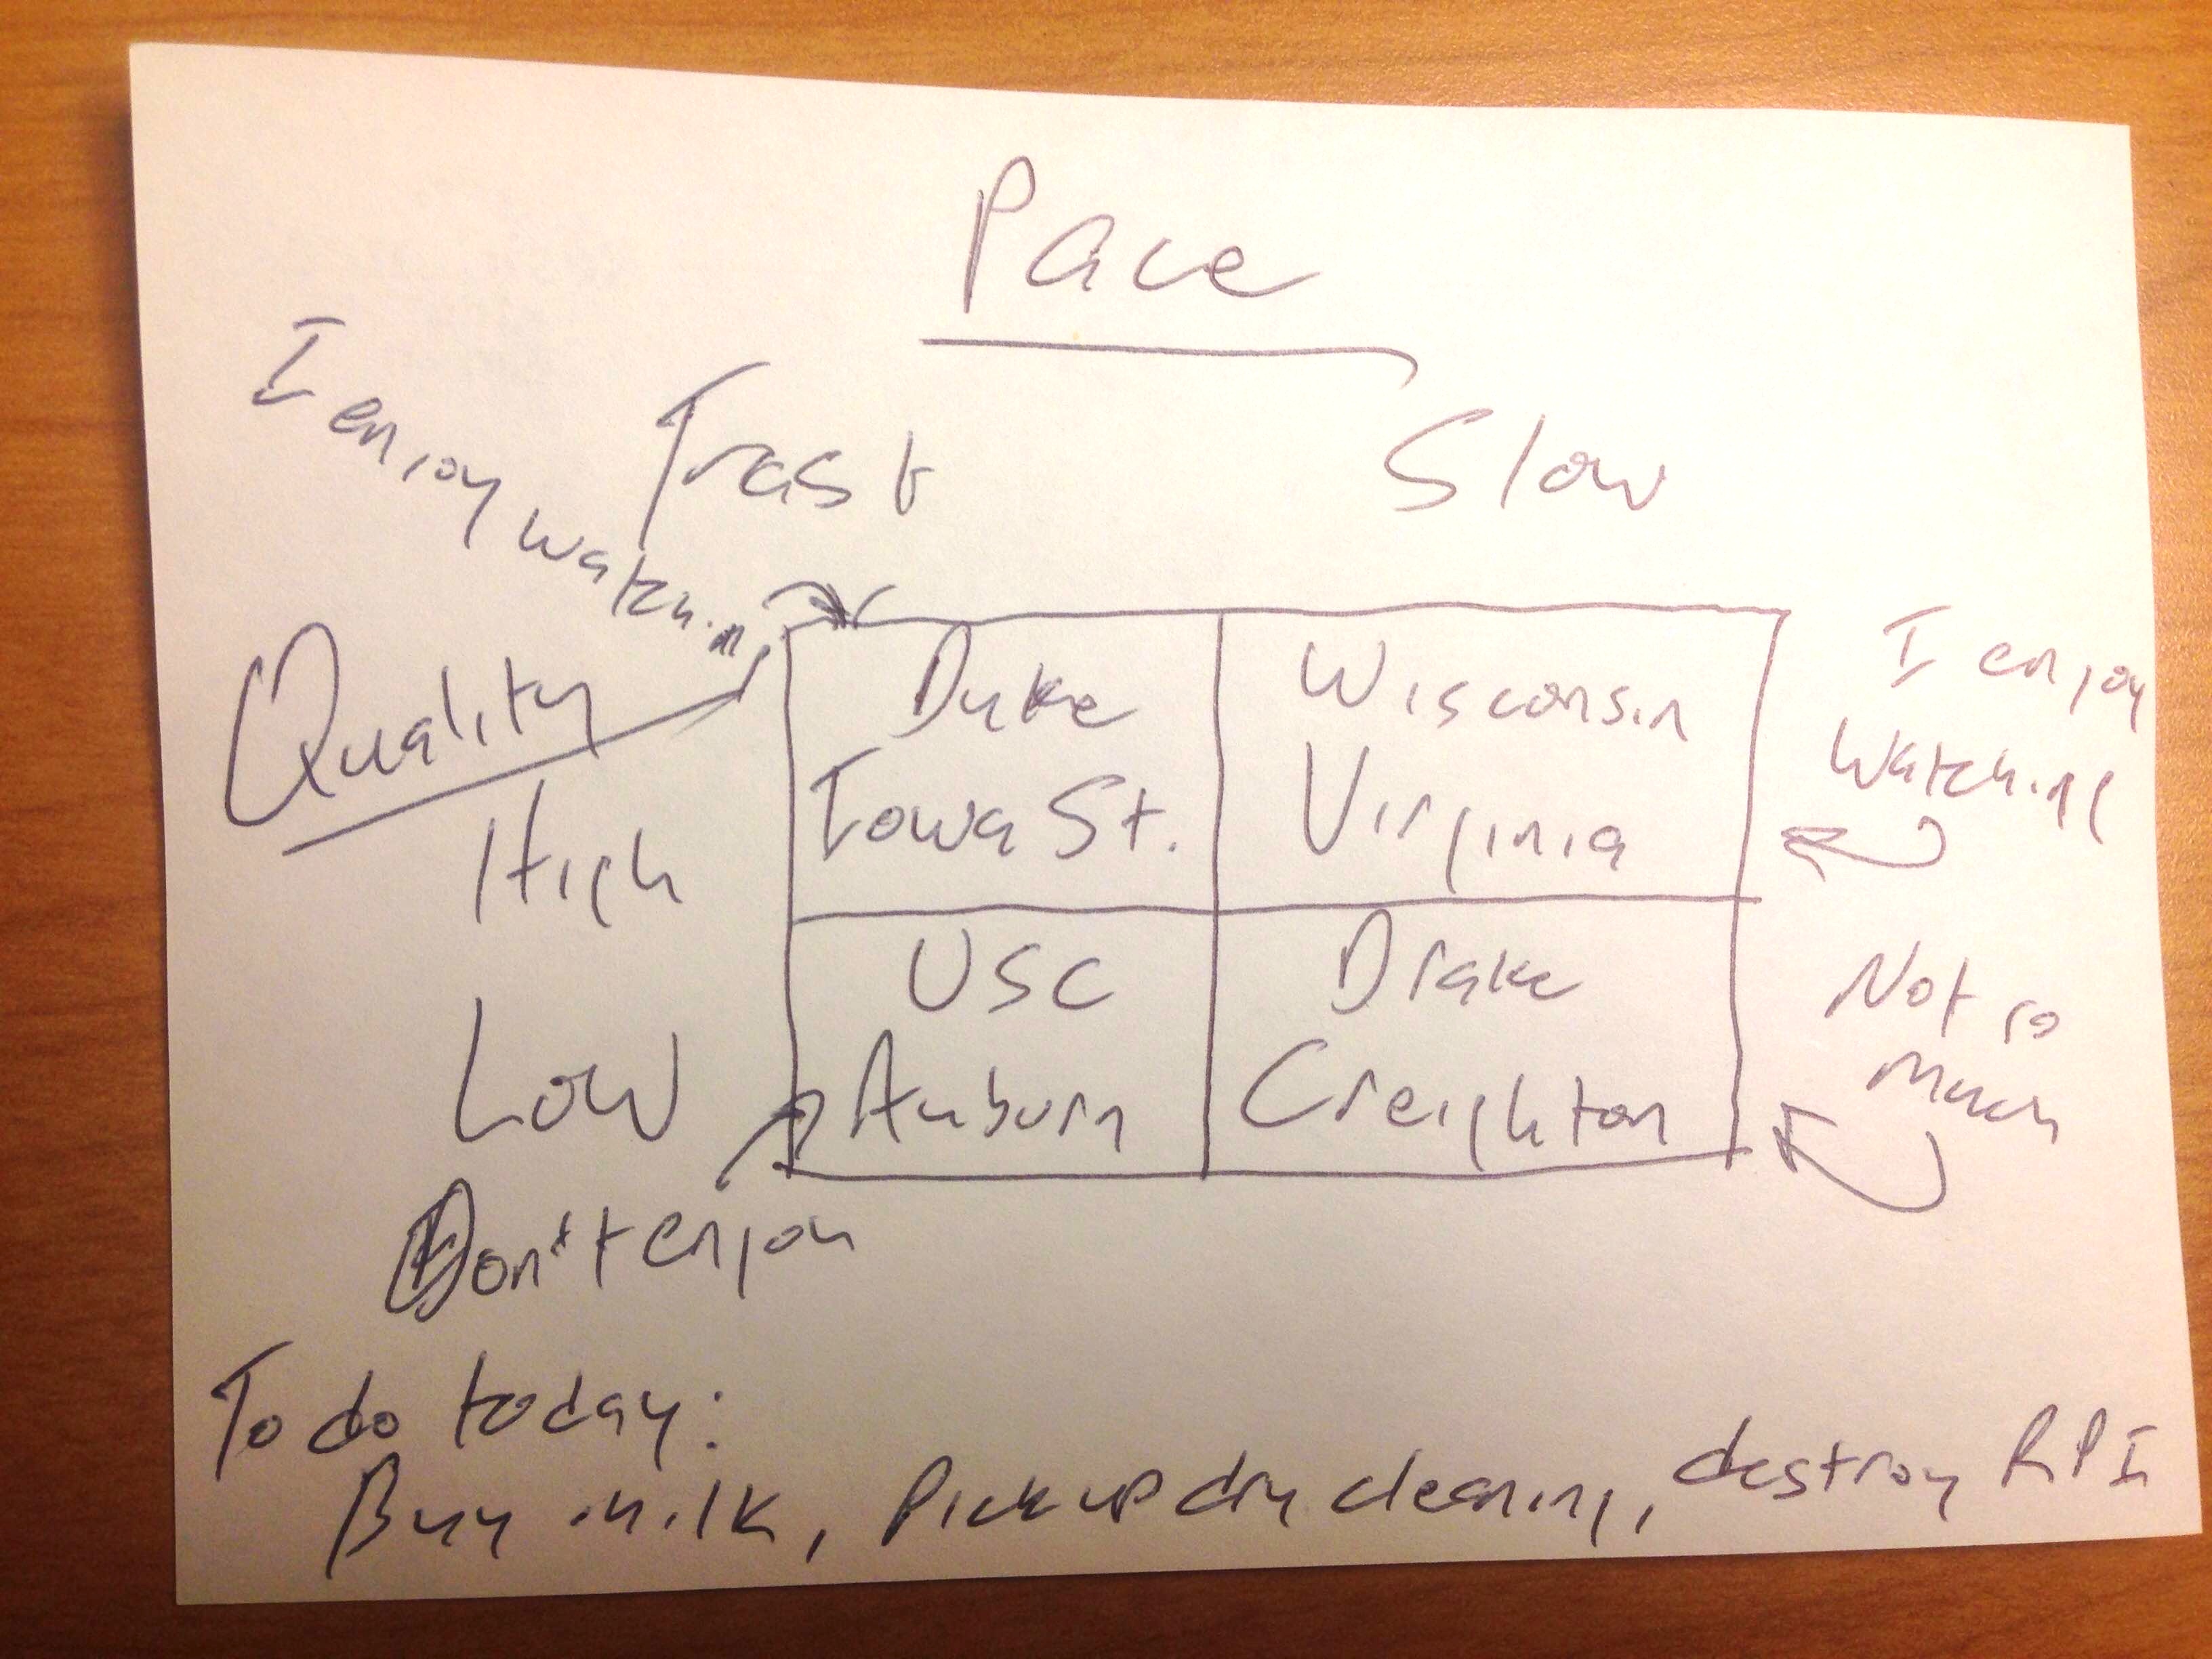 Pace
Fast Slow
I enjoy watching
Quality
High
Low
Duke
Iowa St.
Wisconsin
Virginia
I enjoy
watching
USC
Auburn
Drake
Creighton
Not so
much
Don't enjoy
To do today:
Buy milk, Pick up dry cleaning, destroy RPI